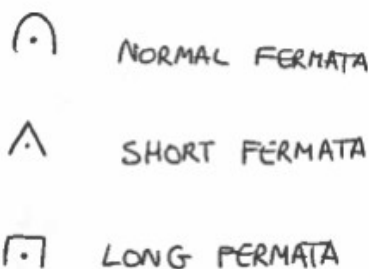 NORMAL FERMATA
SHORT FERMATA
LONG FERMATA